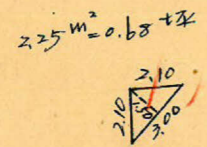 2.25m²=0.68十坪
2.10
2.10
3.00